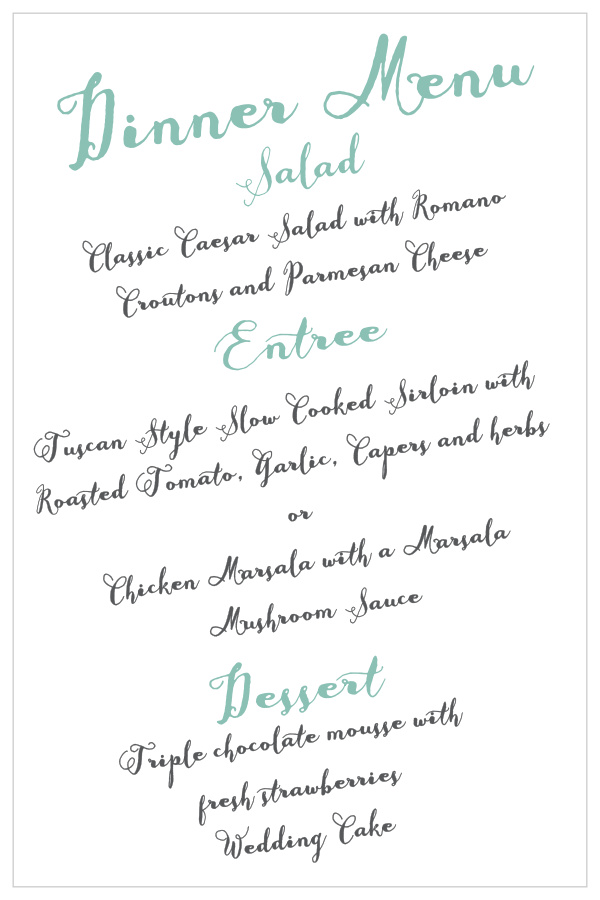 Dinner Menu
Salad
Classic Caesar Salad with Romano
Croutons and Parmesan Cheese
Entree
Tuscan Style Slow Cooked Sirloin with
Roasted Tomato, Garlic, Capers and herbs
or
Chicken Marsala with a Marsala
Mushroom Sauce
Dessert
Triple chocolate mousse with
fresh strawberries
Wedding Cake